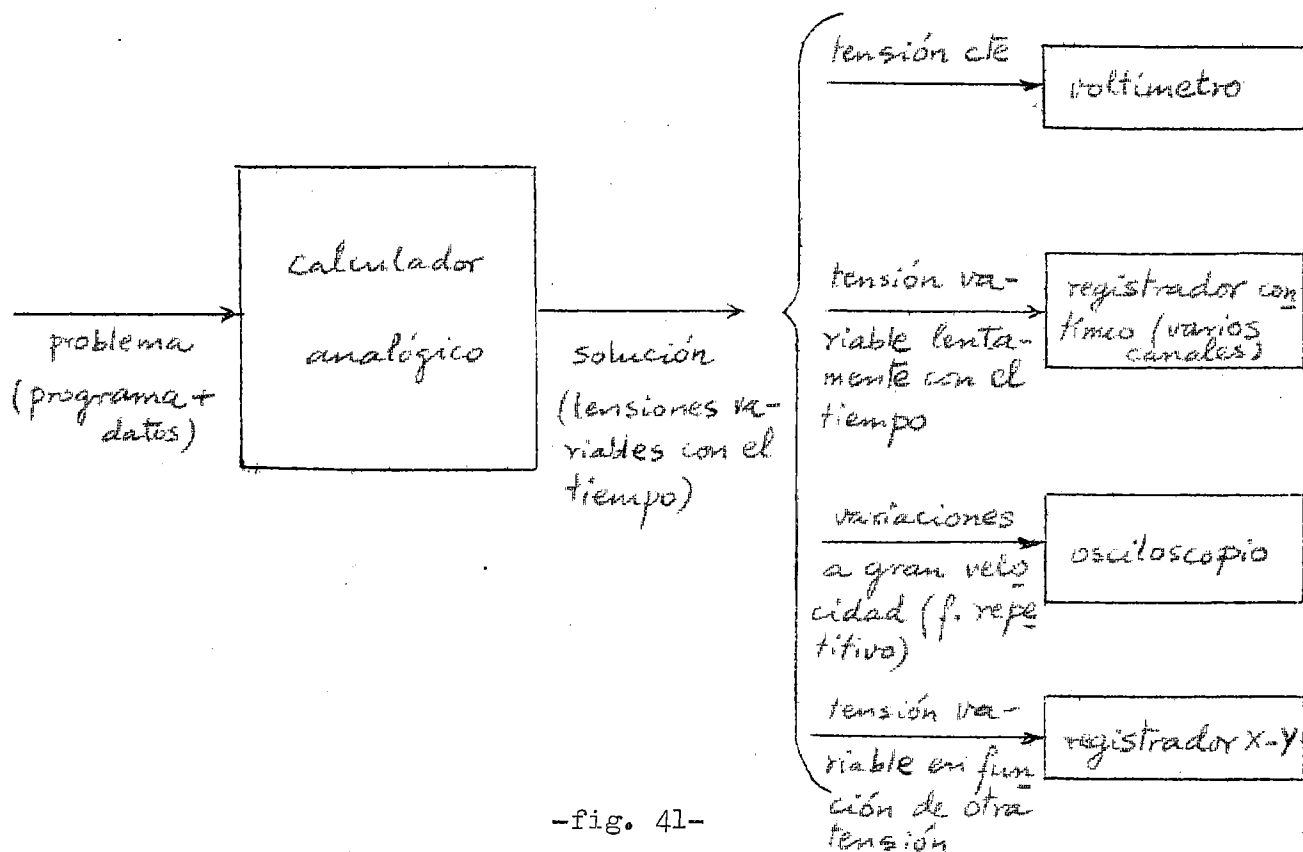 problema
(programa +
datos)
calculador
analógico
solución
(tensiones va-
riables con el
tiempo)
tensión cte
voltímetro
tensión va-
riable lenta-
mente con el
tiempo
registrador con
tínuo (varios
canales)
variaciones
a gran velo
cidad (f. repe
titivo)
osciloscopio
tensión va-
riable en fun
ción de otra
tensión
registrador X-Y
-fig. 41-